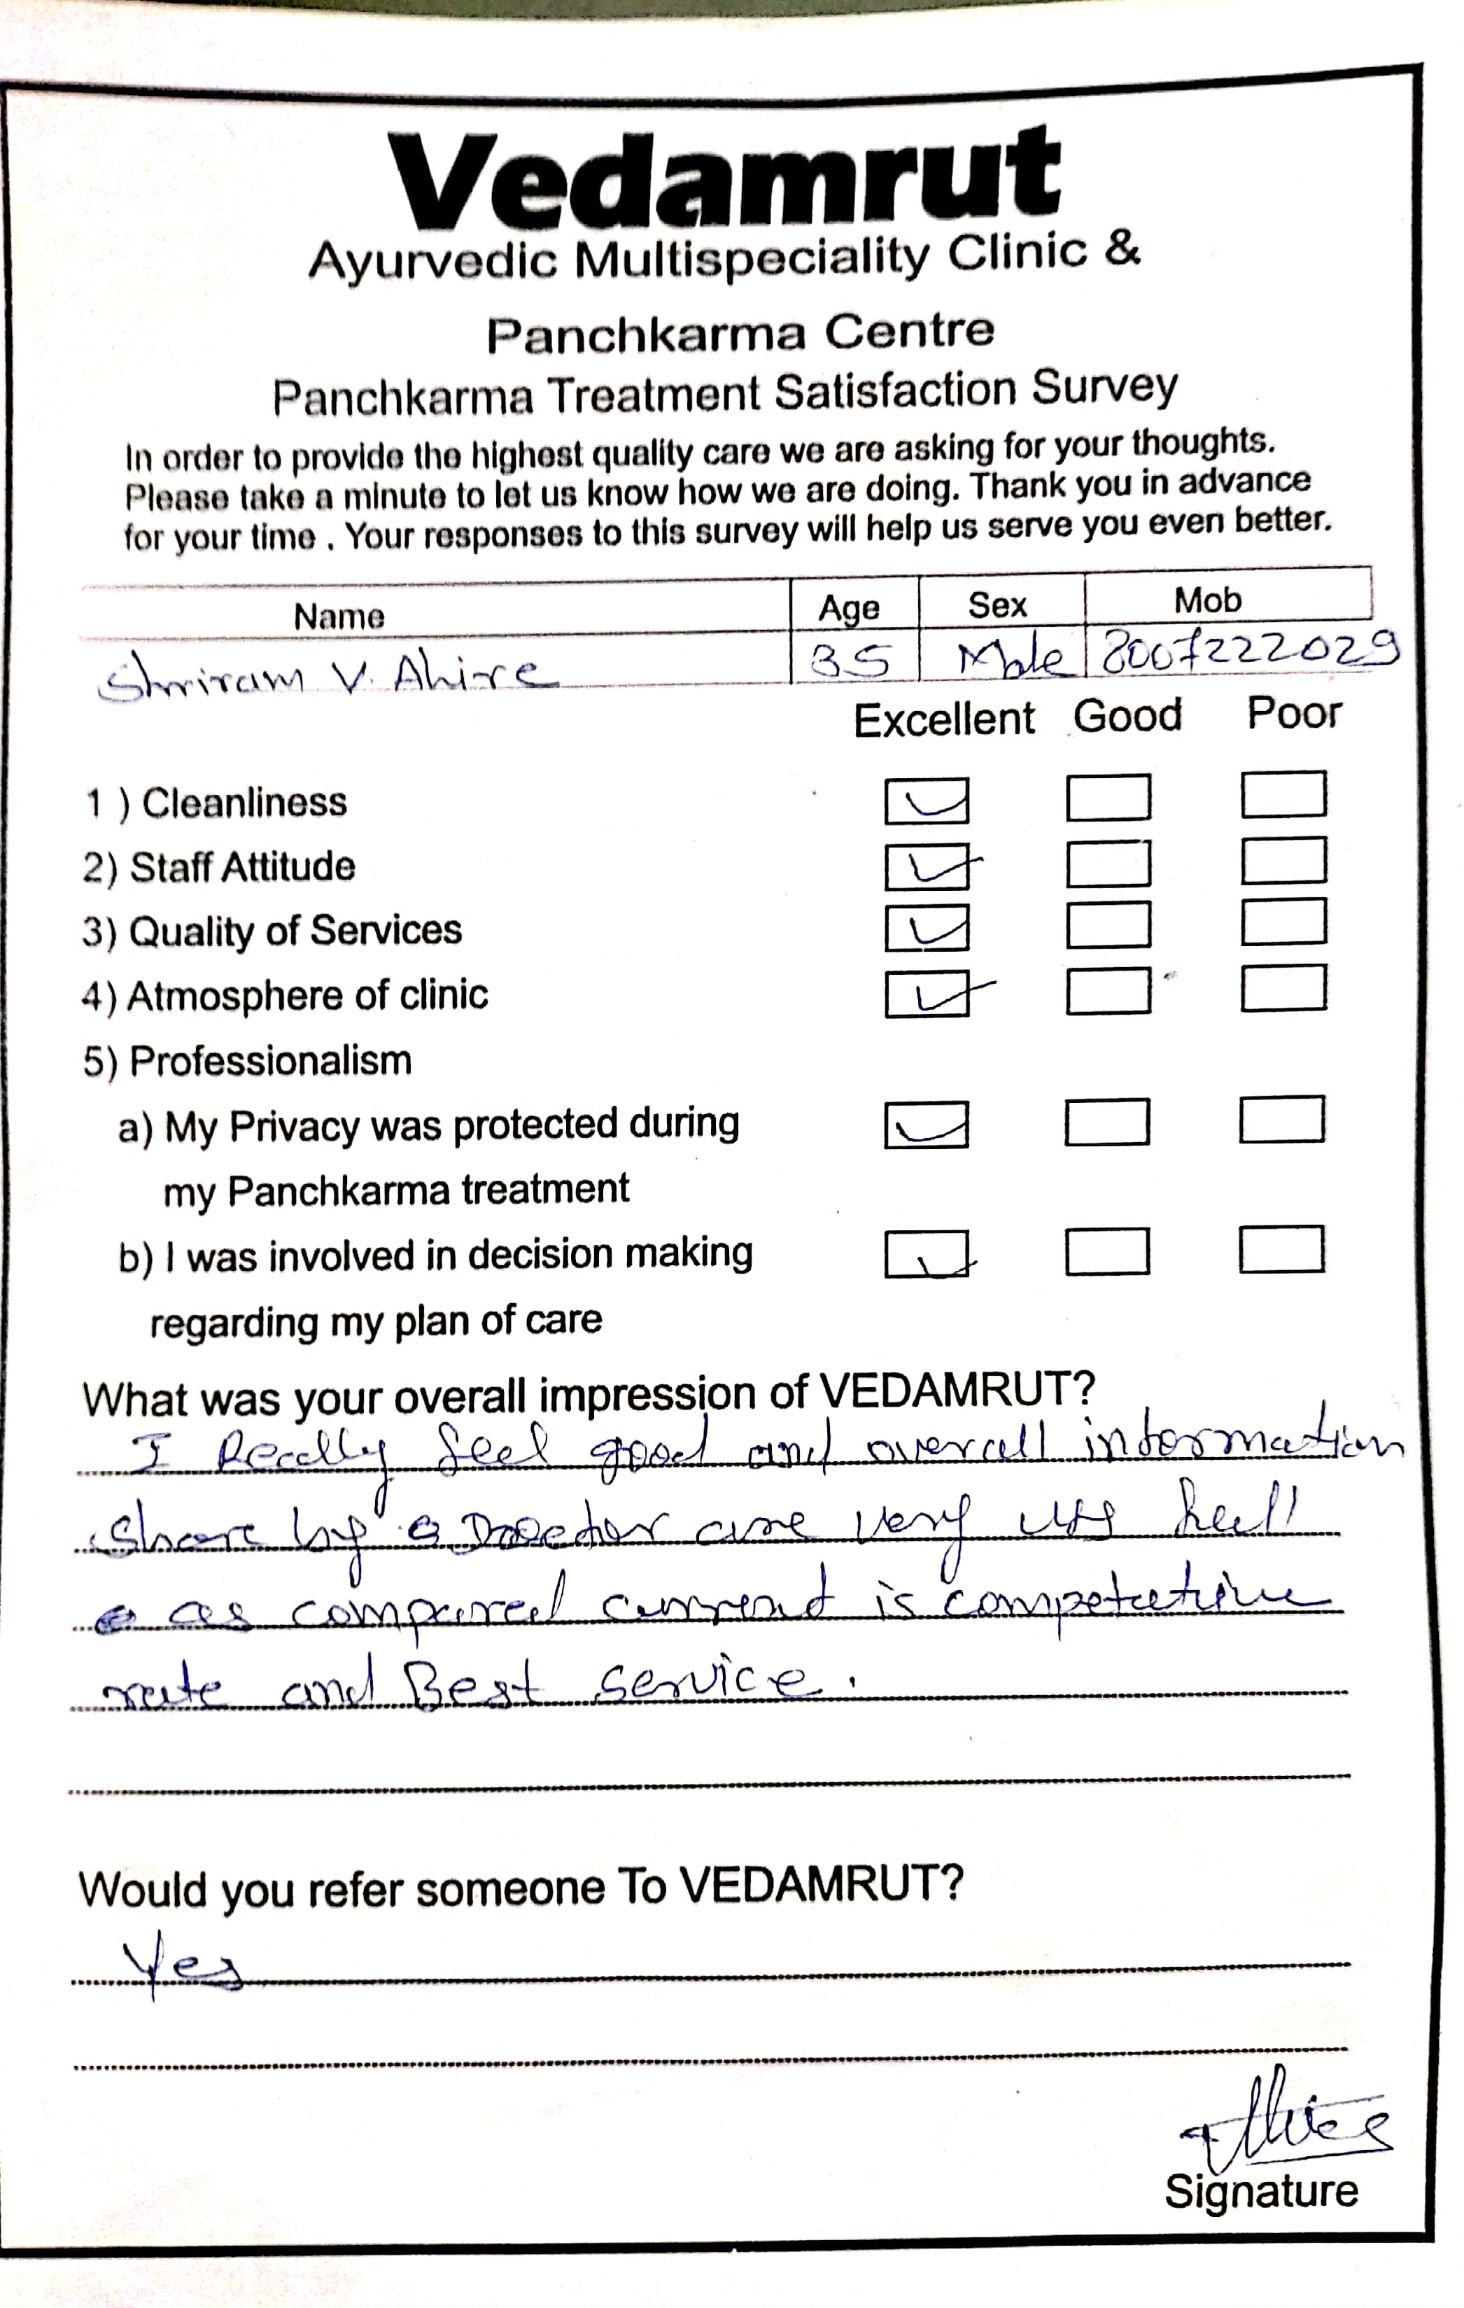 Vedamrut
Ayurvedic Multispeciality Clinic &
Panchkarma Centre
Panchkarma Treatment Satisfaction Survey
In order to provide the highest quality care we are asking for your thoughts.
Please take a minute to let us know how we are doing. Thank you in advance
for your time . Your responses to this survey will help us serve you even better.
Name Age Sex Mob
Shriram V. Ahire 35 Male 8007222029
Excellent Good Poor
1 ) Cleanliness
2) Staff Attitude
3) Quality of Services
4) Atmosphere of clinic
5) Professionalism
a) My Privacy was protected during
my Panchkarma treatment
b) I was involved in decision making
regarding my plan of care
What was your overall impression of VEDAMRUT?
I Really feel good and overall information
share by Doector are very
as compared current is competative
rate and Best service.
Would you refer someone To VEDAMRUT?
Yes
Signature